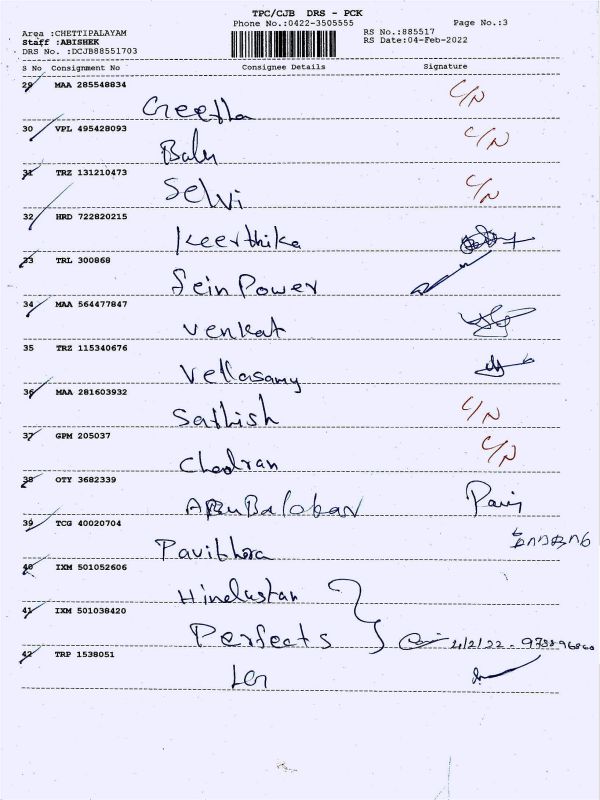 TPC/CJB DRS - PCK
Phone No.:0422-3505555
Page No.:3
Area :CHETTIPALAYAM
Staff :ABISHEK
DRS No. :DCJB88551703
RS No.:885517
RS Date:04-Feb-2022
S No Consignment No Consignee Details Signature
29 MAA 285548834
Geetha C/N
30 VPL 495428093
Balu C/N
31 TRZ 131210473
Selvi C/N
32 HRD 722820215
Keerthika
33 TRL 300868
Sein Power
34 MAA 564477847
Venkat
35 TRZ 115340676
Vellasamy
36 MAA 281603932
Sathish C/N
37 GPM 205037
Chadran C/N
38 OTY 3682339
39 TCG 40020704
Pavibhora
40 IXM 501052606
Hindustan
41 IXM 501038420
Perfects 4/2/22 -
42 TRP 1538051